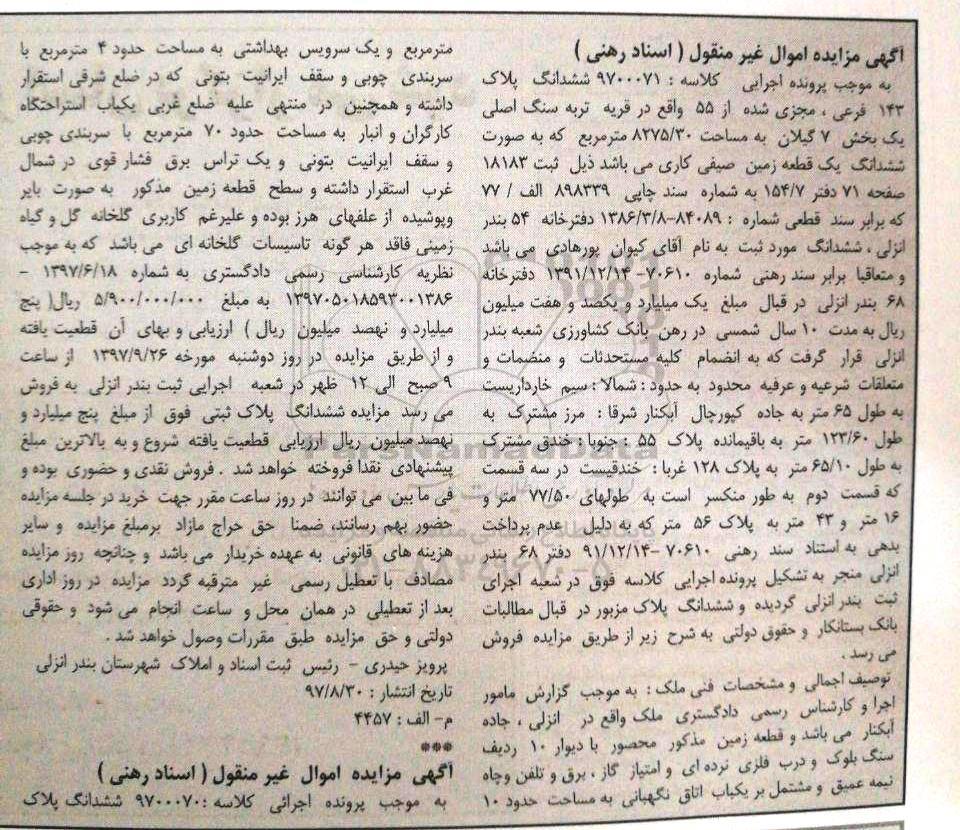 آگهی مزایده اموال غیر منقول ( اسناد رهنی )
به موجب پرونده اجرایی کلاسه : ۹۷۰۰۰۷۱ ششدانگ پلاک
۱۴۳ فرعی ، مجزی شده از ۵۵ واقع در قریه تربه سنگ اصلی
یک بخش ۷ گیلان به مساحت ۸۲۷۵/۳۰ مترمربع که به صورت
ششدانگ یک قطعه زمین صیفی کاری می باشد ذیل ثبت ۱۸۱۸۳
صفحه ۷۱ دفتر ۱۵۴/۷ به شماره سند چاپی ۸۹۸۳۳۹ الف / ۷۷
که برابر سند قطعی شماره : ۸۴۰۸۹-۱۳۸۶/۳/۸ دفترخانه ۵۴ بندر
انزلی ، ششدانگ مورد ثبت به نام آقای کیوان پورهادی می باشد
و متعاقبا برابر سند رهنی شماره ۷۰۶۱۰- ۱۳۹۱/۱۲/۱۴ دفترخانه
۶۸ بندر انزلی در قبال مبلغ یک میلیارد و یکصد و هفت میلیون
ریال به مدت ۱۰ سال شمسی در رهن بانک کشاورزی شعبه بندر
انزلی قرار گرفت که به انضمام کلیه مستحدثات و منضمات و
متعلقات شرعیه و عرفیه محدود به حدود : شمالا : سیم خارداریست
به طول ۶۵ متر به جاده کپورچال آبکنار شرقا : مرز مشترک به
طول ۱۲۳/۶۰ متر به باقیمانده پلاک ۵۵ : جنوبا : خندق مشترک
به طول ۶۵/۱۰ متر به پلاک ۱۲۸ غربا : خندقیست در سه قسمت
که قسمت دوم به طور منکسر است به طولهای ۷۷/۵۰ متر و
۱۶ متر و ۴۳ متر به پلاک ۵۶ متر که به دلیل عدم پرداخت
بدهی به استناد سند رهنی ۷۰۶۱۰ -۹۱/۱۲/۱۴ دفتر ۶۸ بندر
انزلی منجر به تشکیل پرونده اجرایی کلاسه فوق در شعبه اجرای
ثبت بندر انزلی گردیده و ششدانگ پلاک مزبور در قبال مطالبات
بانک بستانکار و حقوق دولتی به شرح زیر از طریق مزایده فروش
می رسد .
توصیف اجمالی و مشخصات فنی ملک : به موجب گزارش مامور
اجرا و کارشناس رسمی دادگستری ملک واقع در انزلی ، جاده
آبکنار می باشد و قطعه زمین مذکور محصور با دیوار ۱۰ ردیف
سنگ بلوک و درب فلزی نرده ای و امتیاز گاز ، برق و تلفن وچاه
نیمه عمیق و مشتمل بر یکباب اتاق نگهبانی به مساحت حدود ۱۰
مترمربع و یک سرویس بهداشتی به مساحت حدود ۴ مترمربع با
سربندی چوبی و سقف ایرانیت بتونی که در ضلع شرقی استقرار
داشته و همچنین در منتهی علیه ضلع غربی یکباب استراحتگاه
کارگران و انبار به مساحت حدود ۷۰ مترمربع با سربندی چوبی
و سقف ایرانیت بتونی و یک تراس برق فشار قوی در شمال
غرب استقرار داشته و سطح قطعه زمین مذکور به صورت بایر
وپوشیده از علفهای هرز بوده و علیرغم کاربری گلخانه گل و گیاه
زمینی فاقد هر گونه تاسیسات گلخانه ای می باشد که به موجب
نظریه کارشناسی رسمی دادگستری به شماره ۱۳۹۷/۶/۱۸ -
۱۳۹۷۰۵۰۱۸۵۹۳۰۰۱۳۸۶ به مبلغ ۵/۹۰۰/۰۰۰/۰۰۰ ریال( پنج
میلیارد و نهصد میلیون ریال ) ارزیابی و بهای آن قطعیت یافته
و از طریق مزایده در روز دوشنبه مورخه ۱۳۹۷/۹/۲۶ از ساعت
۹ صبح الی ۱۲ ظهر در شعبه اجرایی ثبت بندر انزلی به فروش
می رسد مزایده ششدانگ پلاک ثبتی فوق از مبلغ پنج میلیارد و
نهصد میلیون ریال ارزیابی قطعیت یافته شروع و به بالاترین مبلغ
پیشنهادی نقدا فروخته خواهد شد . فروش نقدی و حضوری بوده و
فی ما بین می توانند در روز ساعت مقرر جهت خرید در جلسه مزایده
حضور بهم رسانند، ضمنا حق حراج مازاد برمبلغ مزایده و سایر
هزینه های قانونی به عهده خریدار می باشد و چنانچه روز مزایده
مصادف با تعطیل رسمی غیر مترقبه گردد مزایده در روز اداری
بعد از تعطیلی در همان محل و ساعت انجام می شود و حقوقی
دولتی و حق مزایده طبق مقررات وصول خواهد شد .
پرویز حیدری - رئیس ثبت اسناد و املاک شهرستان بندر انزلی
تاریخ انتشار : ۹۷/۸/۳۰
م- الف : ۴۴۵۷
***
آگهی مزایده اموال غیر منقول ( اسناد رهنی )
به موجب پرونده اجرائی کلاسه :۹۷۰۰۰۷۰ ششدانگ پلاک
ParsNamadData
۰۲۱-۸۸۳۴۹۶۷۰-۵